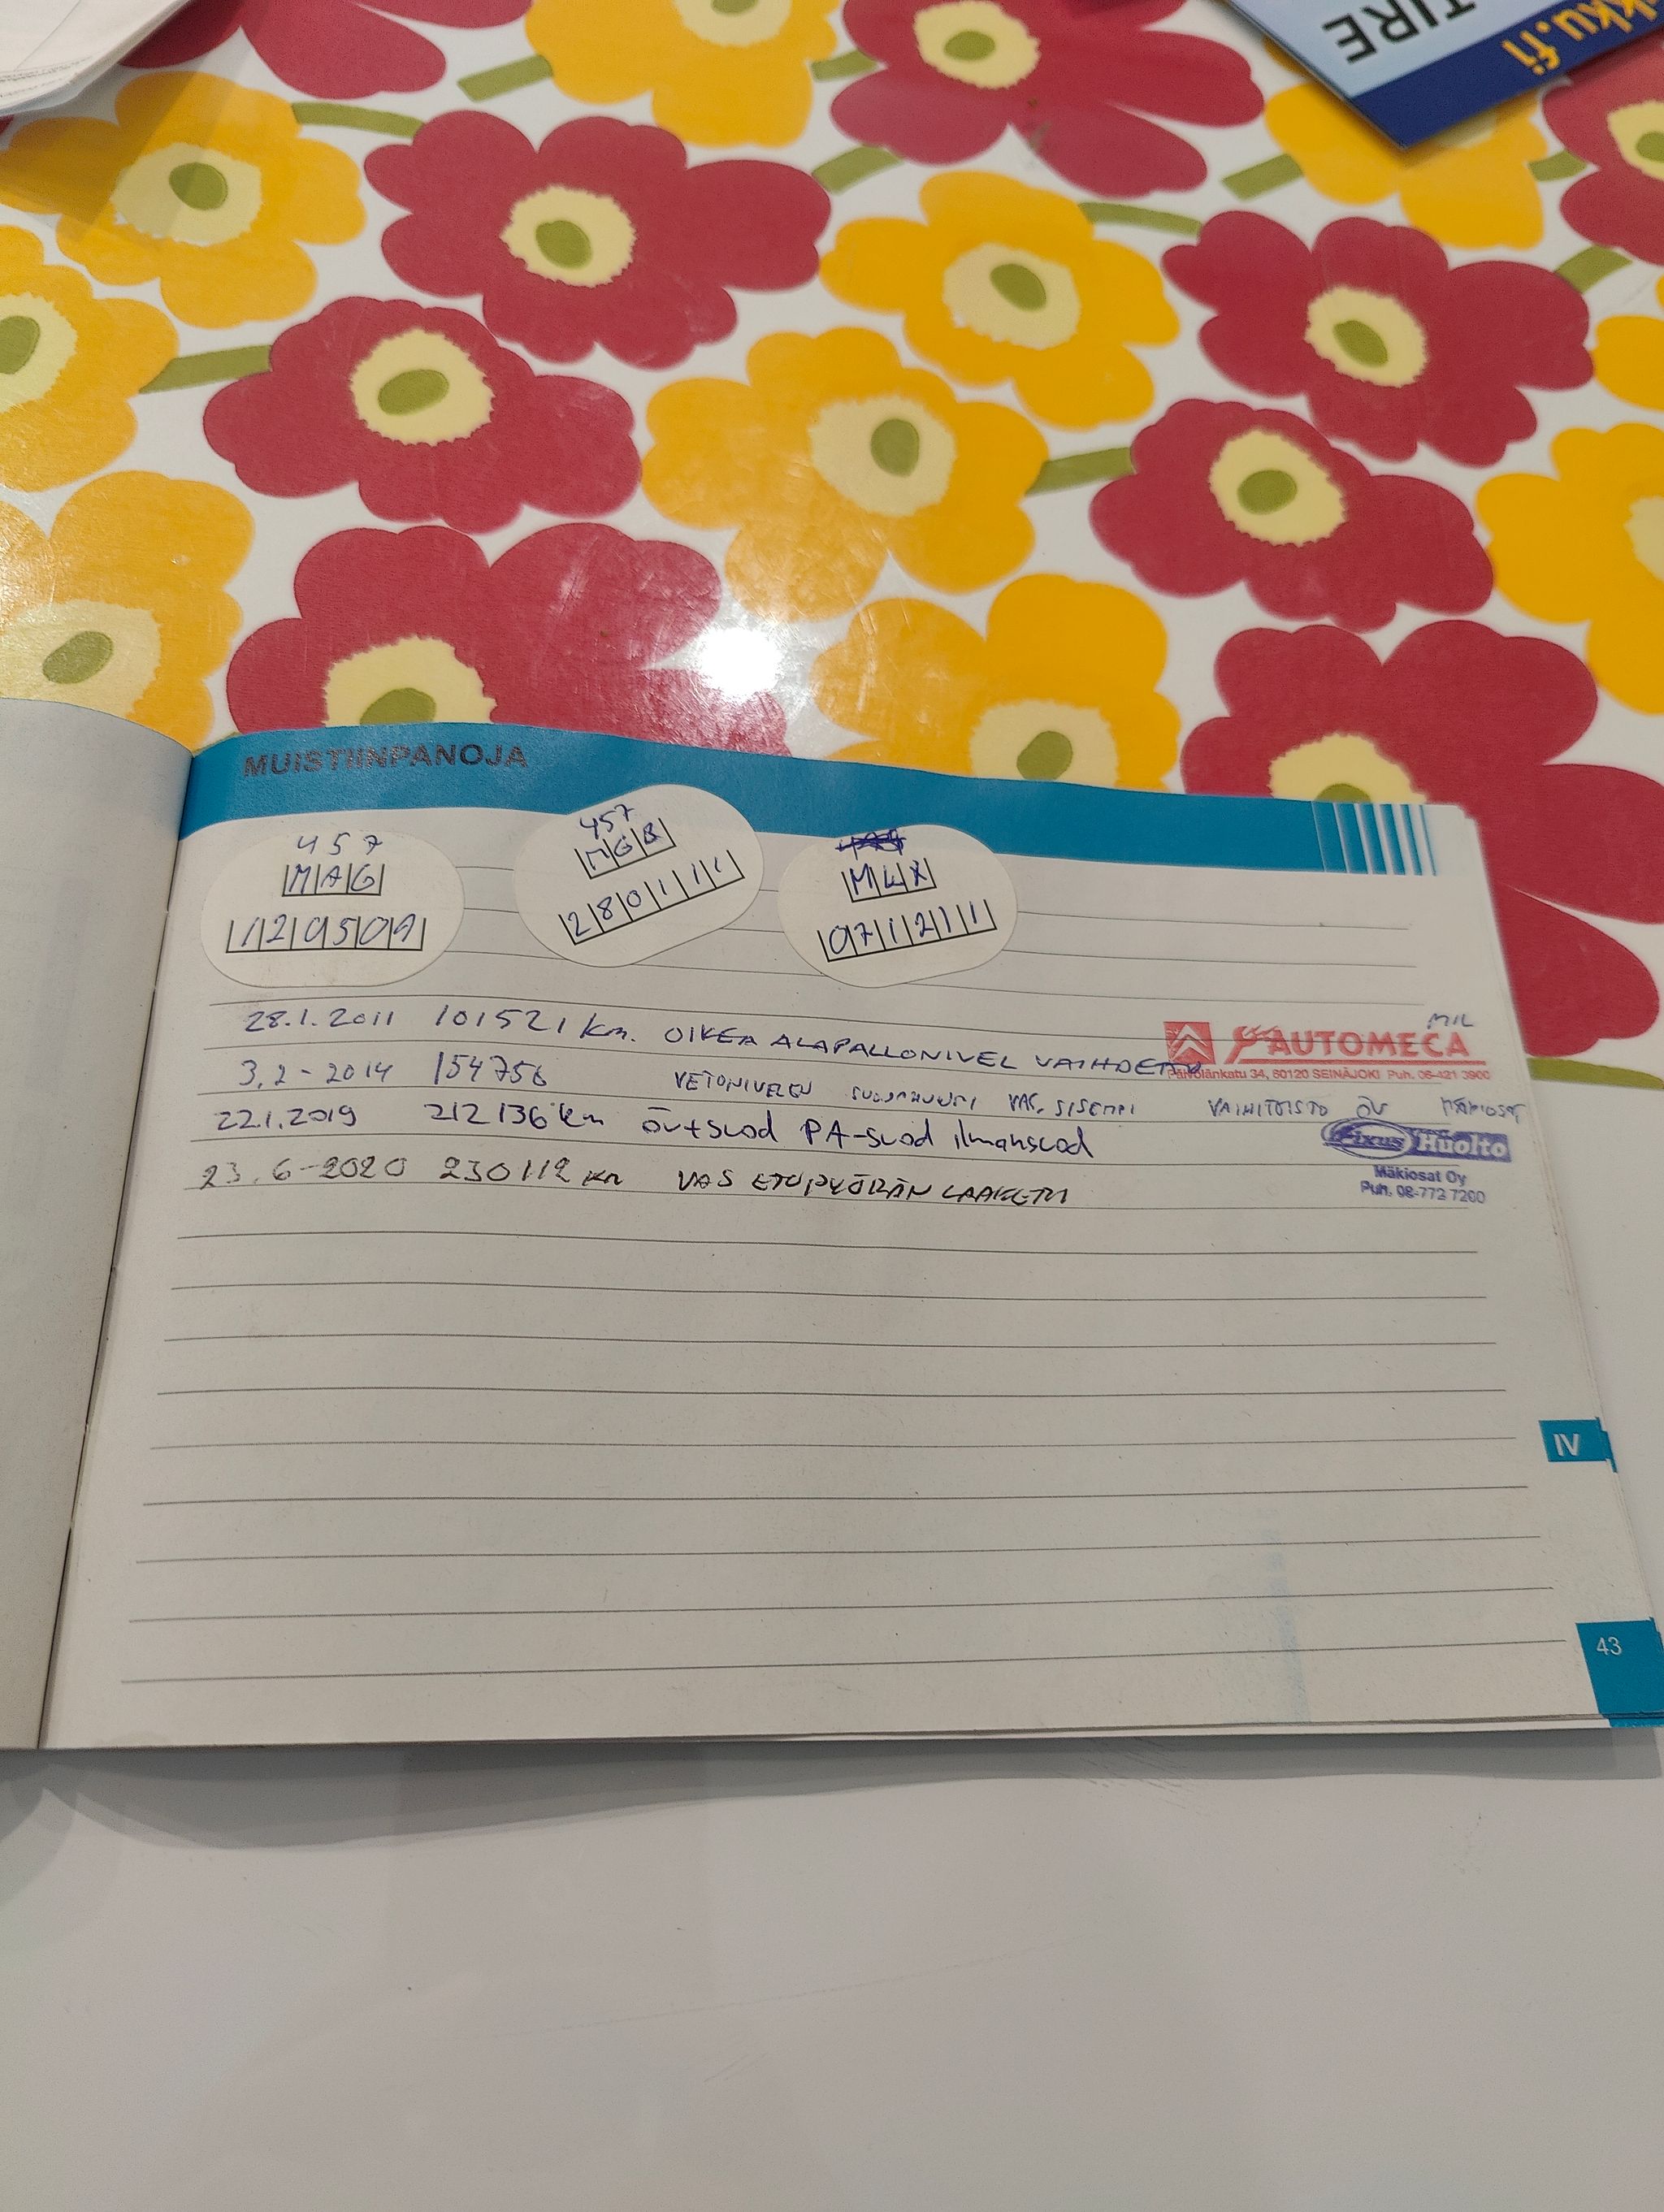 kku.fi
TIRE
MUISTIINPANOJA
457
MAG
120509
457
MGB
280111
MLX
071211
28.1.2011 101521 km. OIKEA ALAPALLONIVEL VAIHDETTU
MIL
AUTOMECA
Päivölänkatu 34, 60120 SEINÄJOKI Puh. 06-421 3900
3.2-2014 154756 VETONIVELEN SUOJAKUMI VAS. SISEMPI VAIHTOISTO
22.1.2019 212136 km ÖVtsuod PA-suod ilmansuod
Fixus Huolto
Mäkiosat Oy
Puh. 08-772 7200
23.6-2020 230112 km VAS ETUPYÖRÄN LAAKERI
IV
43